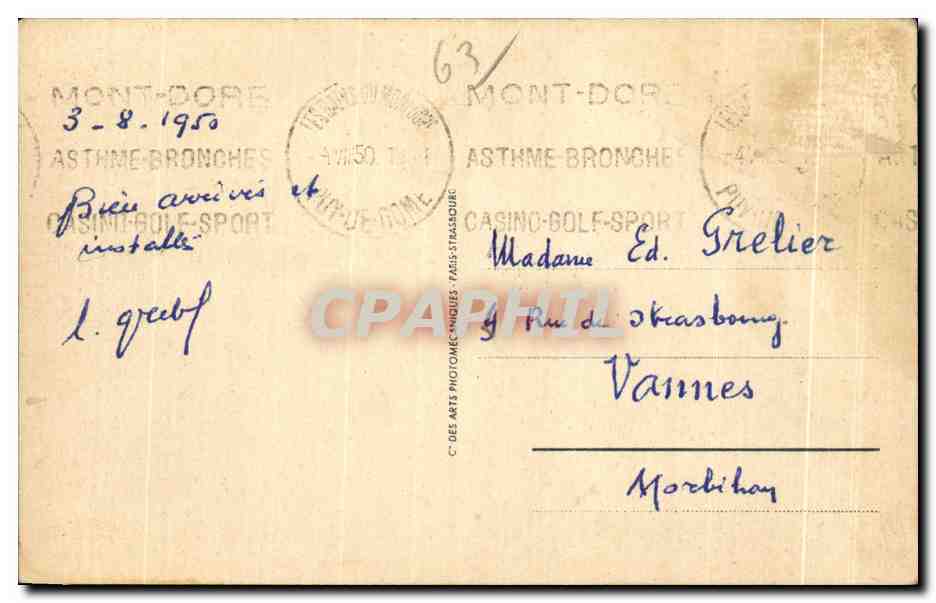 63
MONT-DORE
ASTHME-BRONCHES
CASINO-GOLF-SPORT
PUY-DE-DOME
MONT-DORE
ASTHME-BRONCHES
CASINO-GOLF-SPORT
3-8-1950
Bien arrivés et
installés
Cie DES ARTS PHOTOMECANIQUES - PARIS-STRASBOURG
CPAPHIL
Madame Ed. Grelier
9 Rue de Strasbourg.
Vannes
Morbihan